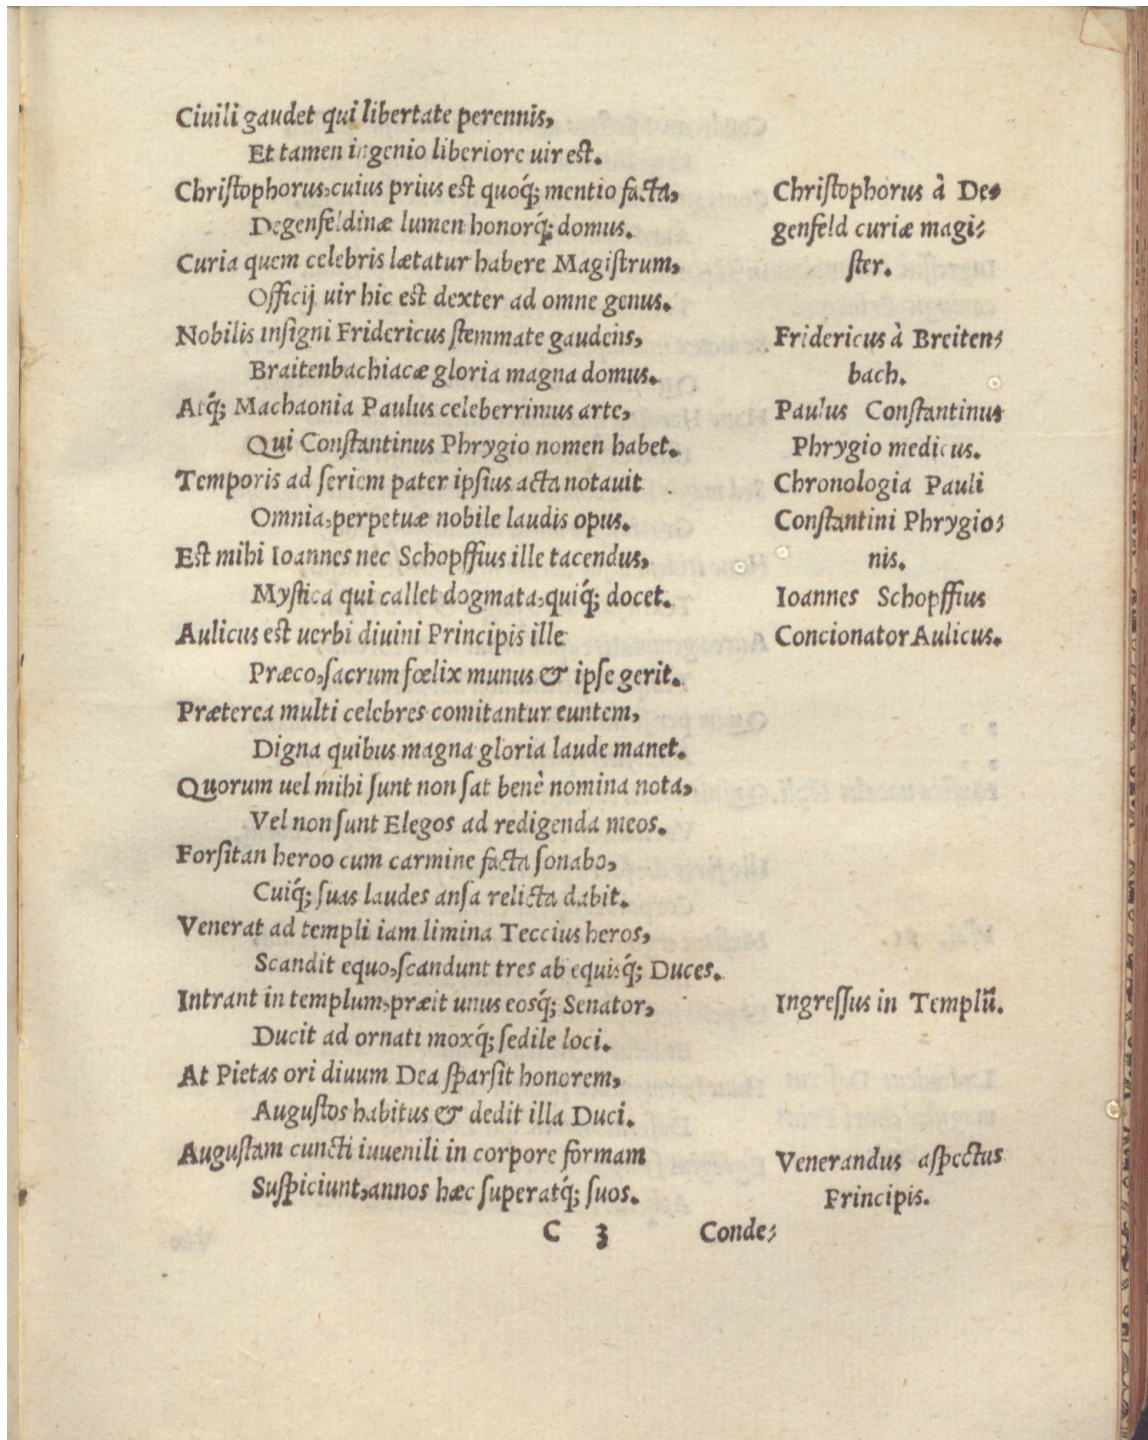 Ciuili gaudet qui libertate perennis,
Et tamen ingenio liberiore uir est.
Chriſtophorus, cuius prius est quoq́; mentio facta,
Degenfeldinæ lumen honorq́; domus.
Curia quem celebris lætatur habere Magiſtrum,
Officij uir hic est dexter ad omne genus.
Nobilis inſigni Fridericus ſtemmate gaudens,
Braitenbachiacæ gloria magna domus.
Atq́; Machaonia Paulus celeberrimus arte,
Qui Conſtantinus Phrygio nomen habet.
Temporis ad ſeriem pater ipſius acta notauit
Omnia, perpetuæ nobile laudis opus.
Est mihi Ioannes nec Schopffius ille tacendus,
Myſtica qui callet dogmata, quiq́; docet.
Aulicus est uerbi diuini Principis ille
Præco, ſacrum fœlix munus & ipſe gerit.
Præterea multi celebres comitantur euntem,
Digna quibus magna gloria laude manet.
Quorum uel mihi ſunt non ſat benè nomina nota,
Vel non ſunt Elegos ad redigenda meos.
Forſitan heroo cum carmine facta ſonabo,
Cuiq́; ſuas laudes anſa relicta dabit.
Venerat ad templi iam limina Teccius heros,
Scandit equo, ſcandunt tres ab equisq́; Duces.
Intrant in templum, præit unus eosq́; Senator,
Ducit ad ornati moxq́; ſedile loci.
At Pietas ori diuum Dea ſparſit honorem,
Auguſtos habitus & dedit illa Duci.
Auguſtam cuncti iuuenili in corpore formam
Suſpiciunt, annos hæc ſuperatq́; ſuos.
Chriſtophorus à De⸗
genfeld curiæ magi⸗
ſter.
Fridericus à Breiten⸗
bach.
Paulus Conſtantinus
Phrygio medicus.
Chronologia Pauli
Conſtantini Phrygio⸗
nis.
Ioannes Schopffius
Concionator Aulicus.
Ingreſſus in Templũ.
Venerandus aſpectus
Principis.
C 3 Conde⸗